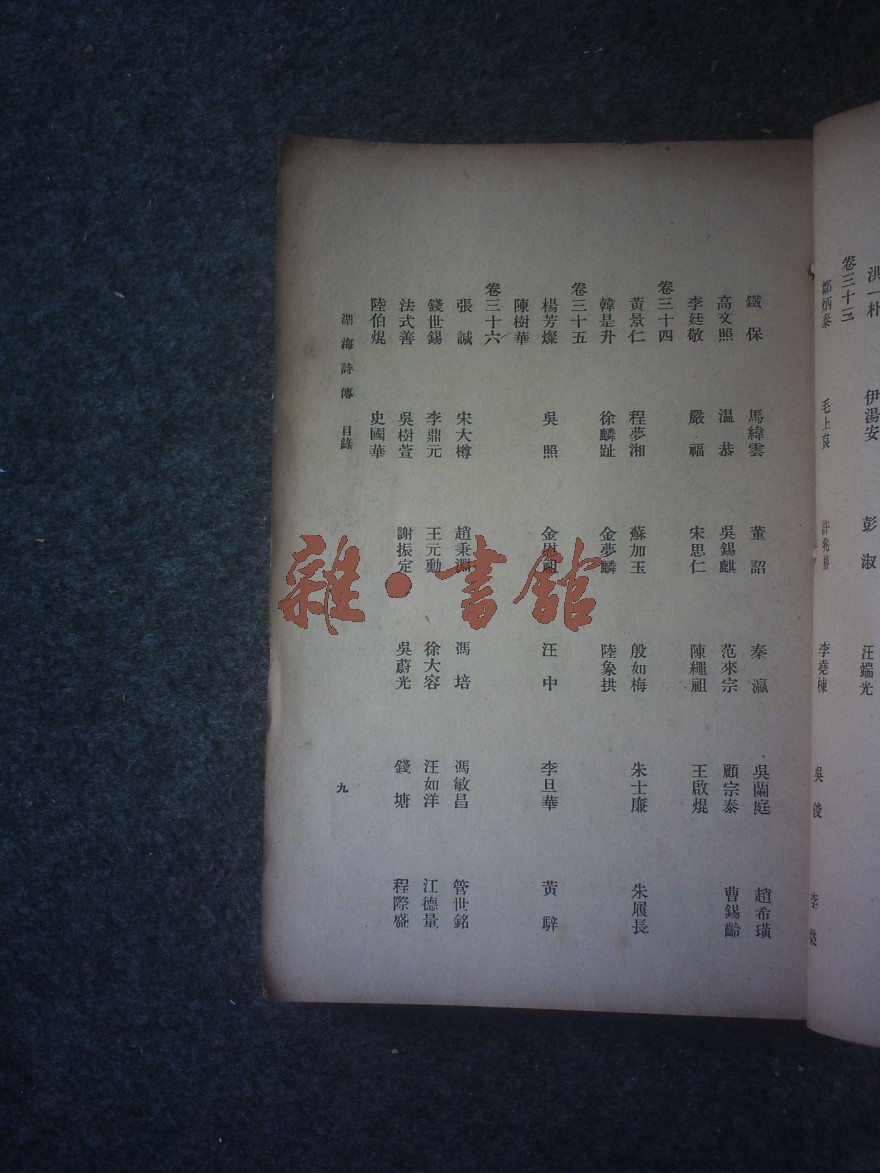 洪一朴 伊湯安 彭 淑 汪端光
卷三十三
鄒炳泰 毛上炱 許兆椿 李堯棟 吳 俊 李
鐵 保 馬緯雲 董 詔 秦 瀛 吳蘭庭 趙希璜
高文照 溫 恭 吳錫麒 范來宗 顧宗泰 曹錫齡
李廷敬 嚴 福 宋思仁 陳繩祖 王啟焜
卷三十四
黃景仁 程夢湘 蘇加玉 殷如梅 朱士廉 朱履長
韓是升 徐麟趾 金夢麟 陸象拱
卷三十五
楊芳燦 吳 照 金 祖 汪 中 李旦華 黃 騂
陳樹華
卷三十六
張 誠 宋大樽 趙秉淵 馮 培 馮敏昌 管世銘
錢世錫 李鼎元 王元勳 徐大容 汪如洋 江德量
法式善 吳樹萱 謝振定 吳蔚光 錢 塘 程際盛
陸伯焜 史國華
湖海詩傳 目錄 九
雜·書館